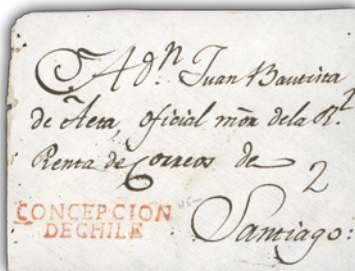 A dn. Juan Bautista
de Aeta, oficial mõr dela Rl.
Renta de Correos de
2
Santiago:
CONCEPCION
DE CHILE